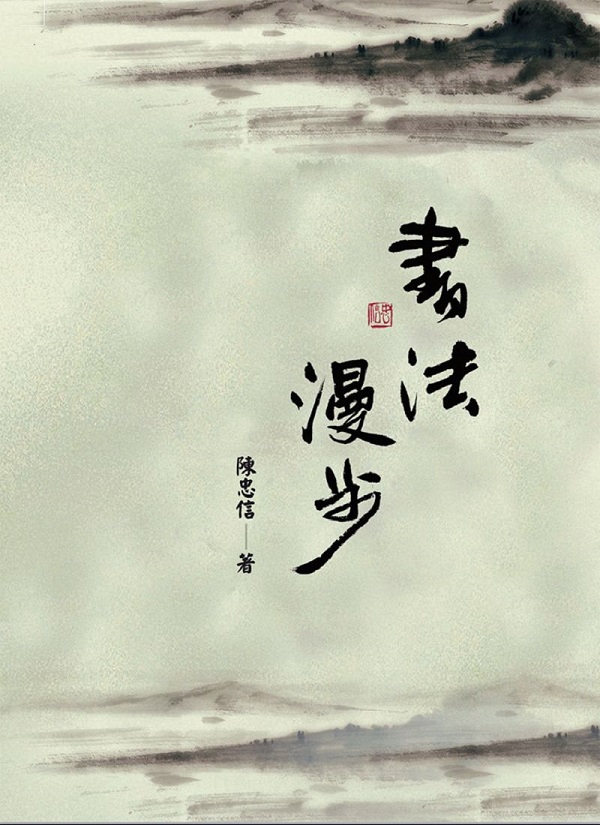 書法
漫步
陳忠信——著
忠信